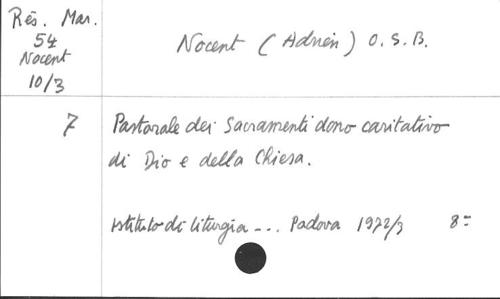 Rés. Mar.
54
Nocent
10/3
Nocent (Adrien) O.S.B.
7
Pastorale dei Sacramenti dono caritativo
di Dio e della Chiesa.
Istituto di liturgia --.. Padova 1972/3 8=